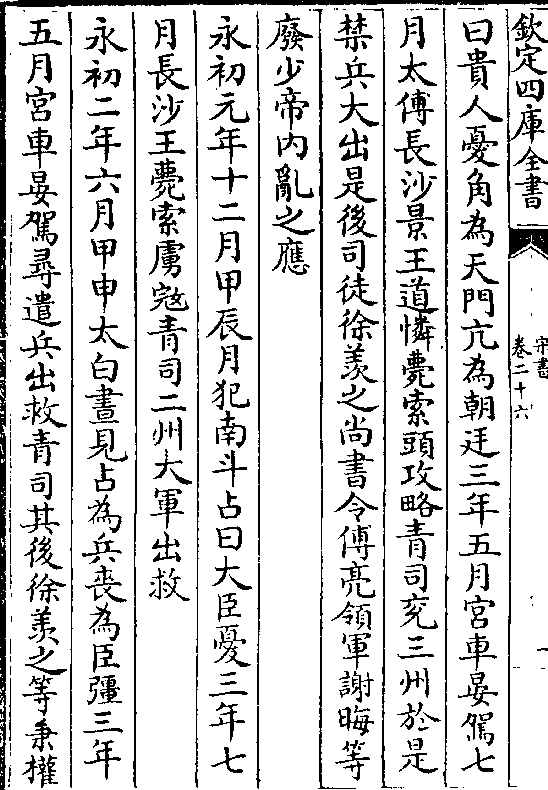 欽定四庫全書
宋書
卷二十六
曰貴人憂角為天門亢為朝廷三年五月宮車晏駕七
月太傅長沙景王道憐薨索頭攻略青司兖三州於是
禁兵大出是後司徒徐羨之尚書令傅亮領軍謝晦等
廢少帝内亂之應
永初元年十二月甲辰月犯南斗占曰大臣憂三年七
月長沙王薨索虜宼青司二州大軍出救
永初二年六月甲申太白晝見占為兵喪為臣彊三年
五月宮車晏駕尋遣兵出救青司其後徐羨之等秉權